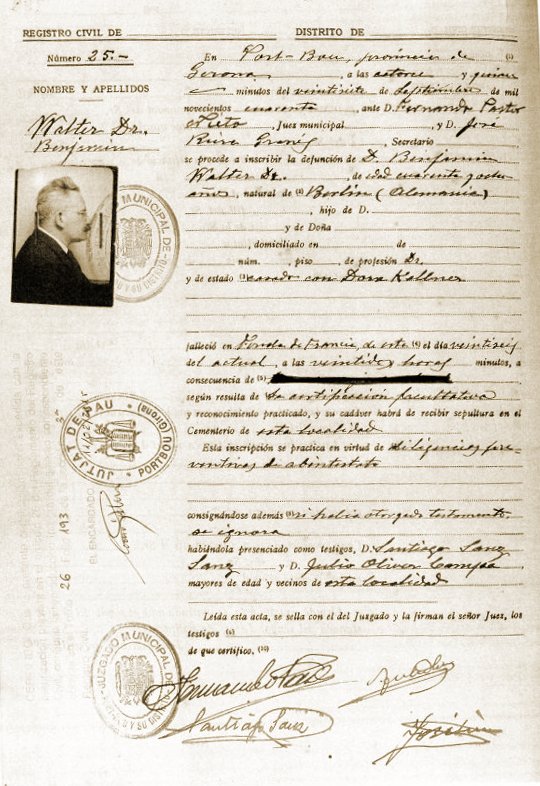 REGISTRO CIVIL DE DISTRITO DE
Número 25.-
NOMBRE Y APELLIDOS
Walter Dr.
Benjamin
En Port-Bou, provincia de (1)
Gerona, a las catorce y quince
minutos del veintisiete de Septiembre de mil
novecientos cuarenta, ante D. Fernando Pastor
Nieto, Juez municipal, y D. José
, Secretario
se procede a inscribir la defunción de D. Benjamin
Walter Dr., de edad cuarenta y ocho
años, natural de (2) Berlin (Alemania)
, hijo de D.
y de Doña
, domiciliado en de
núm. piso, de profesión Dr.
y de estado (3) casado con Dora Kellner
falleció en Fonda de Francia, de esta (4) el día veintiseis
del actual, a las veintidos horas minutos, a
consecuencia de (5)
según resulta de la certificación facultativa
y reconocimiento practicado, y su cadáver habrá de recibir sepultura en el
Cementerio de esta localidad
Esta inscripción se practica en virtud de diligencias pre-
ventivas de abintestato
consignándose además (8) si había otorgado testamento,
se ignora
habiéndola presenciado como testigos, D. Santiago Sanz
Sanz y D. Julio Oliver Campa
mayores de edad y vecinos de esta localidad
Leída esta acta, se sella con el del Juzgado y la firman el señor Juez, los
testigos (9)
de que certifico. (10)
JUTJAT DE PAU
PORTBOU (Girona)
EL ENCARGADO
26 193
JUZGADO MUNICIPAL DE
Y SU DISTRITO
Santiago Sanz